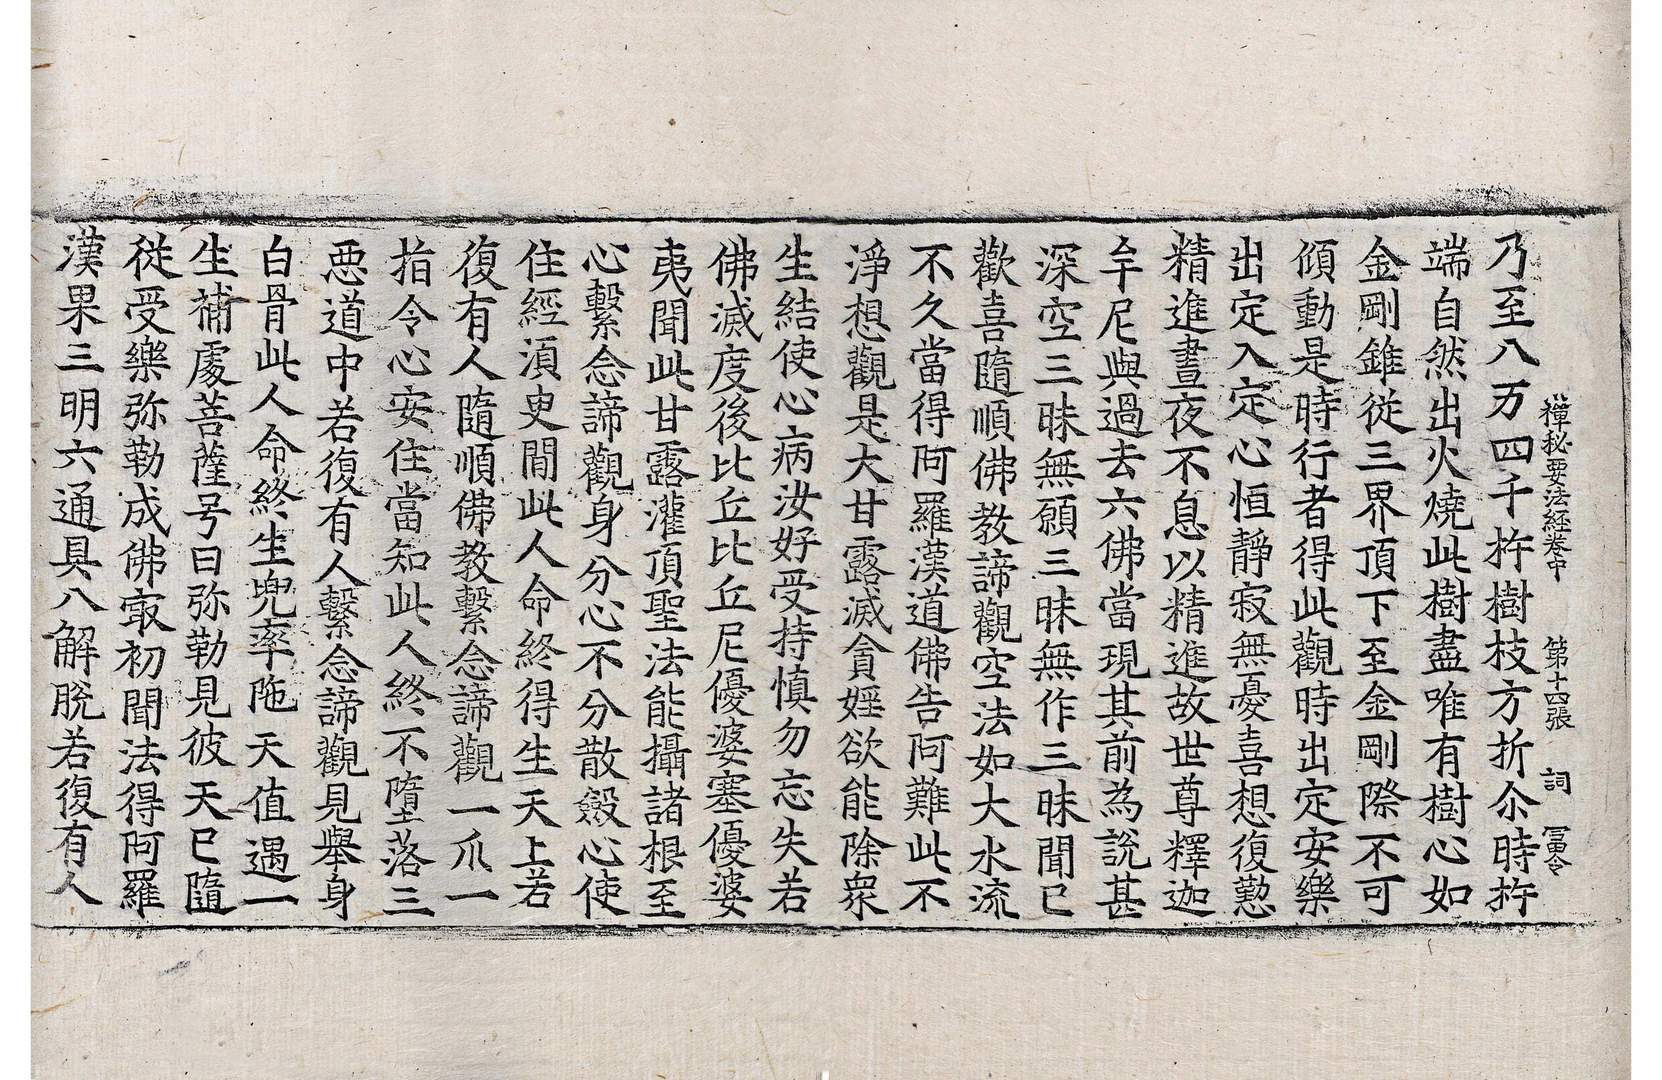 禪秘要法經卷中　第十四張　詞　冨令
乃至八万四千拤樹枝方折尒時拤
端自然出火燒此樹盡唯有樹心如
金剛錐從三界頂下至金剛際不可
傾動是時行者得此觀時出定安樂
出定入定心恒靜寂無憂喜想復懃
精進晝夜不息以精進故世尊釋迦
牟尼與過去六佛當現其前為說甚
深空三昧無願三昧無作三昧聞已
歡喜隨順佛教諦觀空法如大水流
不久當得阿羅漢道佛告阿難此不
淨想觀是大甘露滅貪婬欲能除衆
生結使心病汝好受持慎勿忘失若
佛滅度後比丘比丘尼優婆塞優婆
夷聞此甘露灌頂聖法能攝諸根至
心繫念諦觀身分心不分散斂心使
住經湏臾閒此人命終得生天上若
復有人隨順佛教繫念諦觀一爪一
指令心安住當知此人終不墮落三
惡道中若復有人繫念諦觀見舉身
白骨此人命終生兜率陁天值遇一
生補處菩薩号曰弥勒見彼天已隨
從受樂弥勒成佛㝡初聞法得阿羅
漢果三明六通具八解脫若復有人